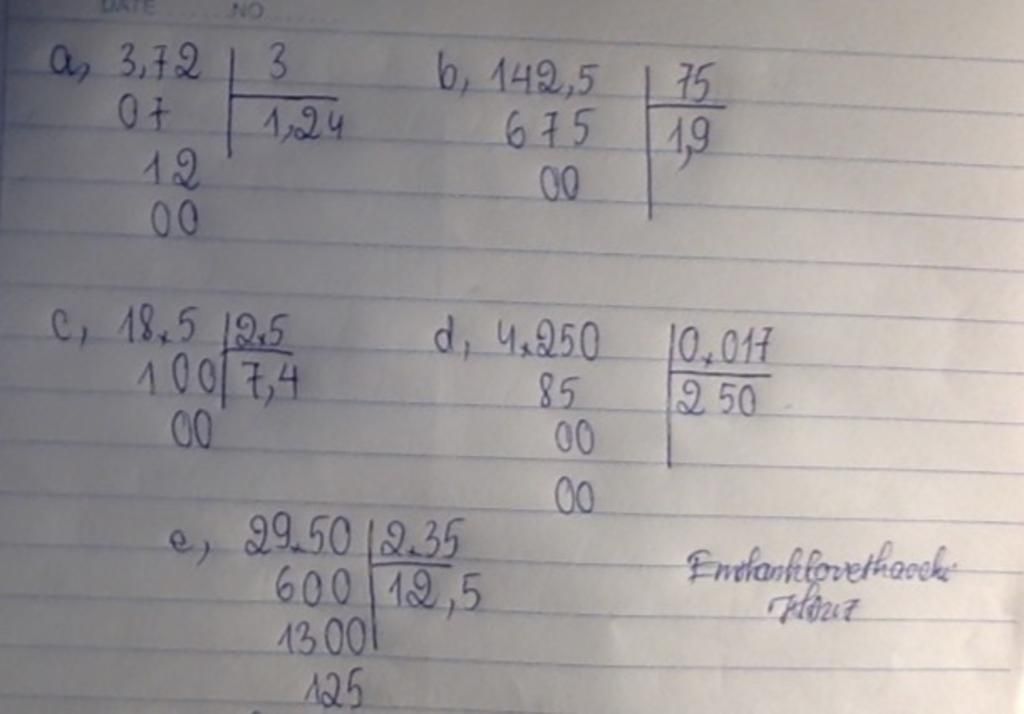 DATE NO
a, 3,72 3
07 1,24
12
00
b, 142,5 75
675 1,9
00
c, 18,5 2,5
100 7,4
00
d, 4,250 0,017
85 250
00
00
e, 29,50 2,35
600 12,5
1300
125